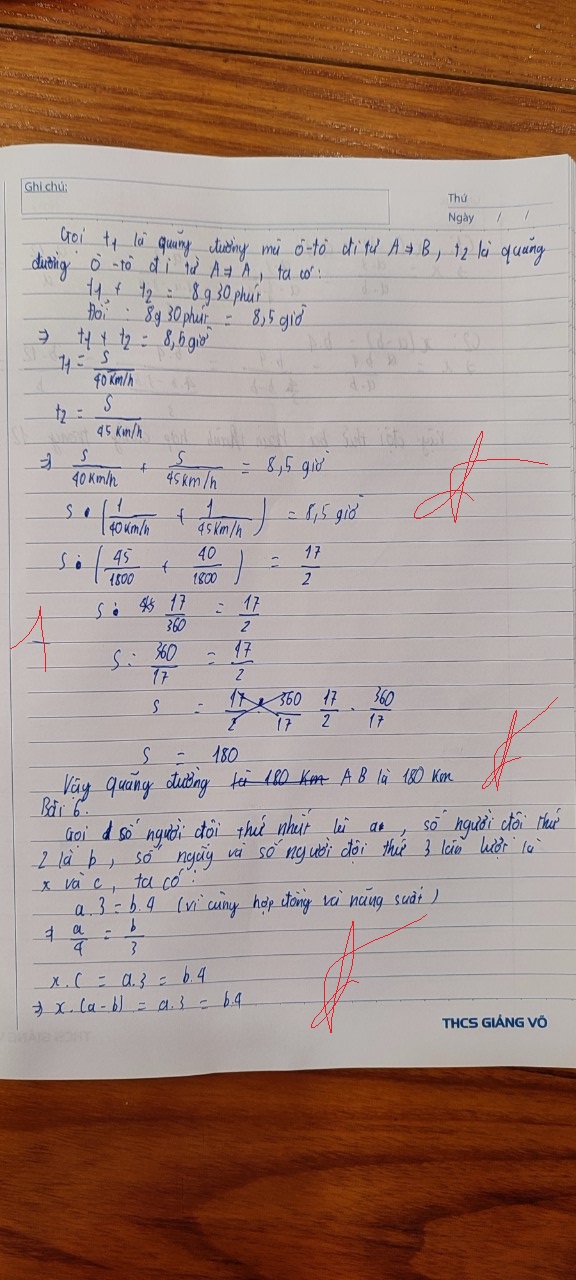 Ghi chú:
Thứ
Ngày / /
Gọi t₁ là quãng đường mà ô-tô đi từ A → B, t₂ là quãng
đường ô-tô đi từ A → A, ta có:
t₁ + t₂ = 8g30phút
Đổi: 8g30phút = 8,5giờ
⇒ t₁ + t₂ = 8,5giờ
t₁ = S/40km/h
t₂ = S/45km/h
⇒ S/40km/h + S/45km/h = 8,5 giờ
S • (1/40km/h + 1/45km/h) = 8,5 giờ
S • (45/1800 + 40/1800) = 17/2
S • 17/360 = 17/2
1
S : 360/17 = 17/2
S = 17/2 . 360/17 17/2 . 360/17
S = 180
Vậy quãng đường là 180 Km AB là 180 Km
Bài 6.
Gọi số người đội thứ nhất là a, số người đội thứ
2 là b, số ngày và số người đội thứ 3 lần lượt là
x và c, ta có:
a.3 = b.4 (vì cùng hợp đồng và năng suất)
⇒ a/4 = b/3
x.c = a.3 = b.4
⇒ x.(a-b) = a.3 = b.4
THCS GIẢNG VÕ